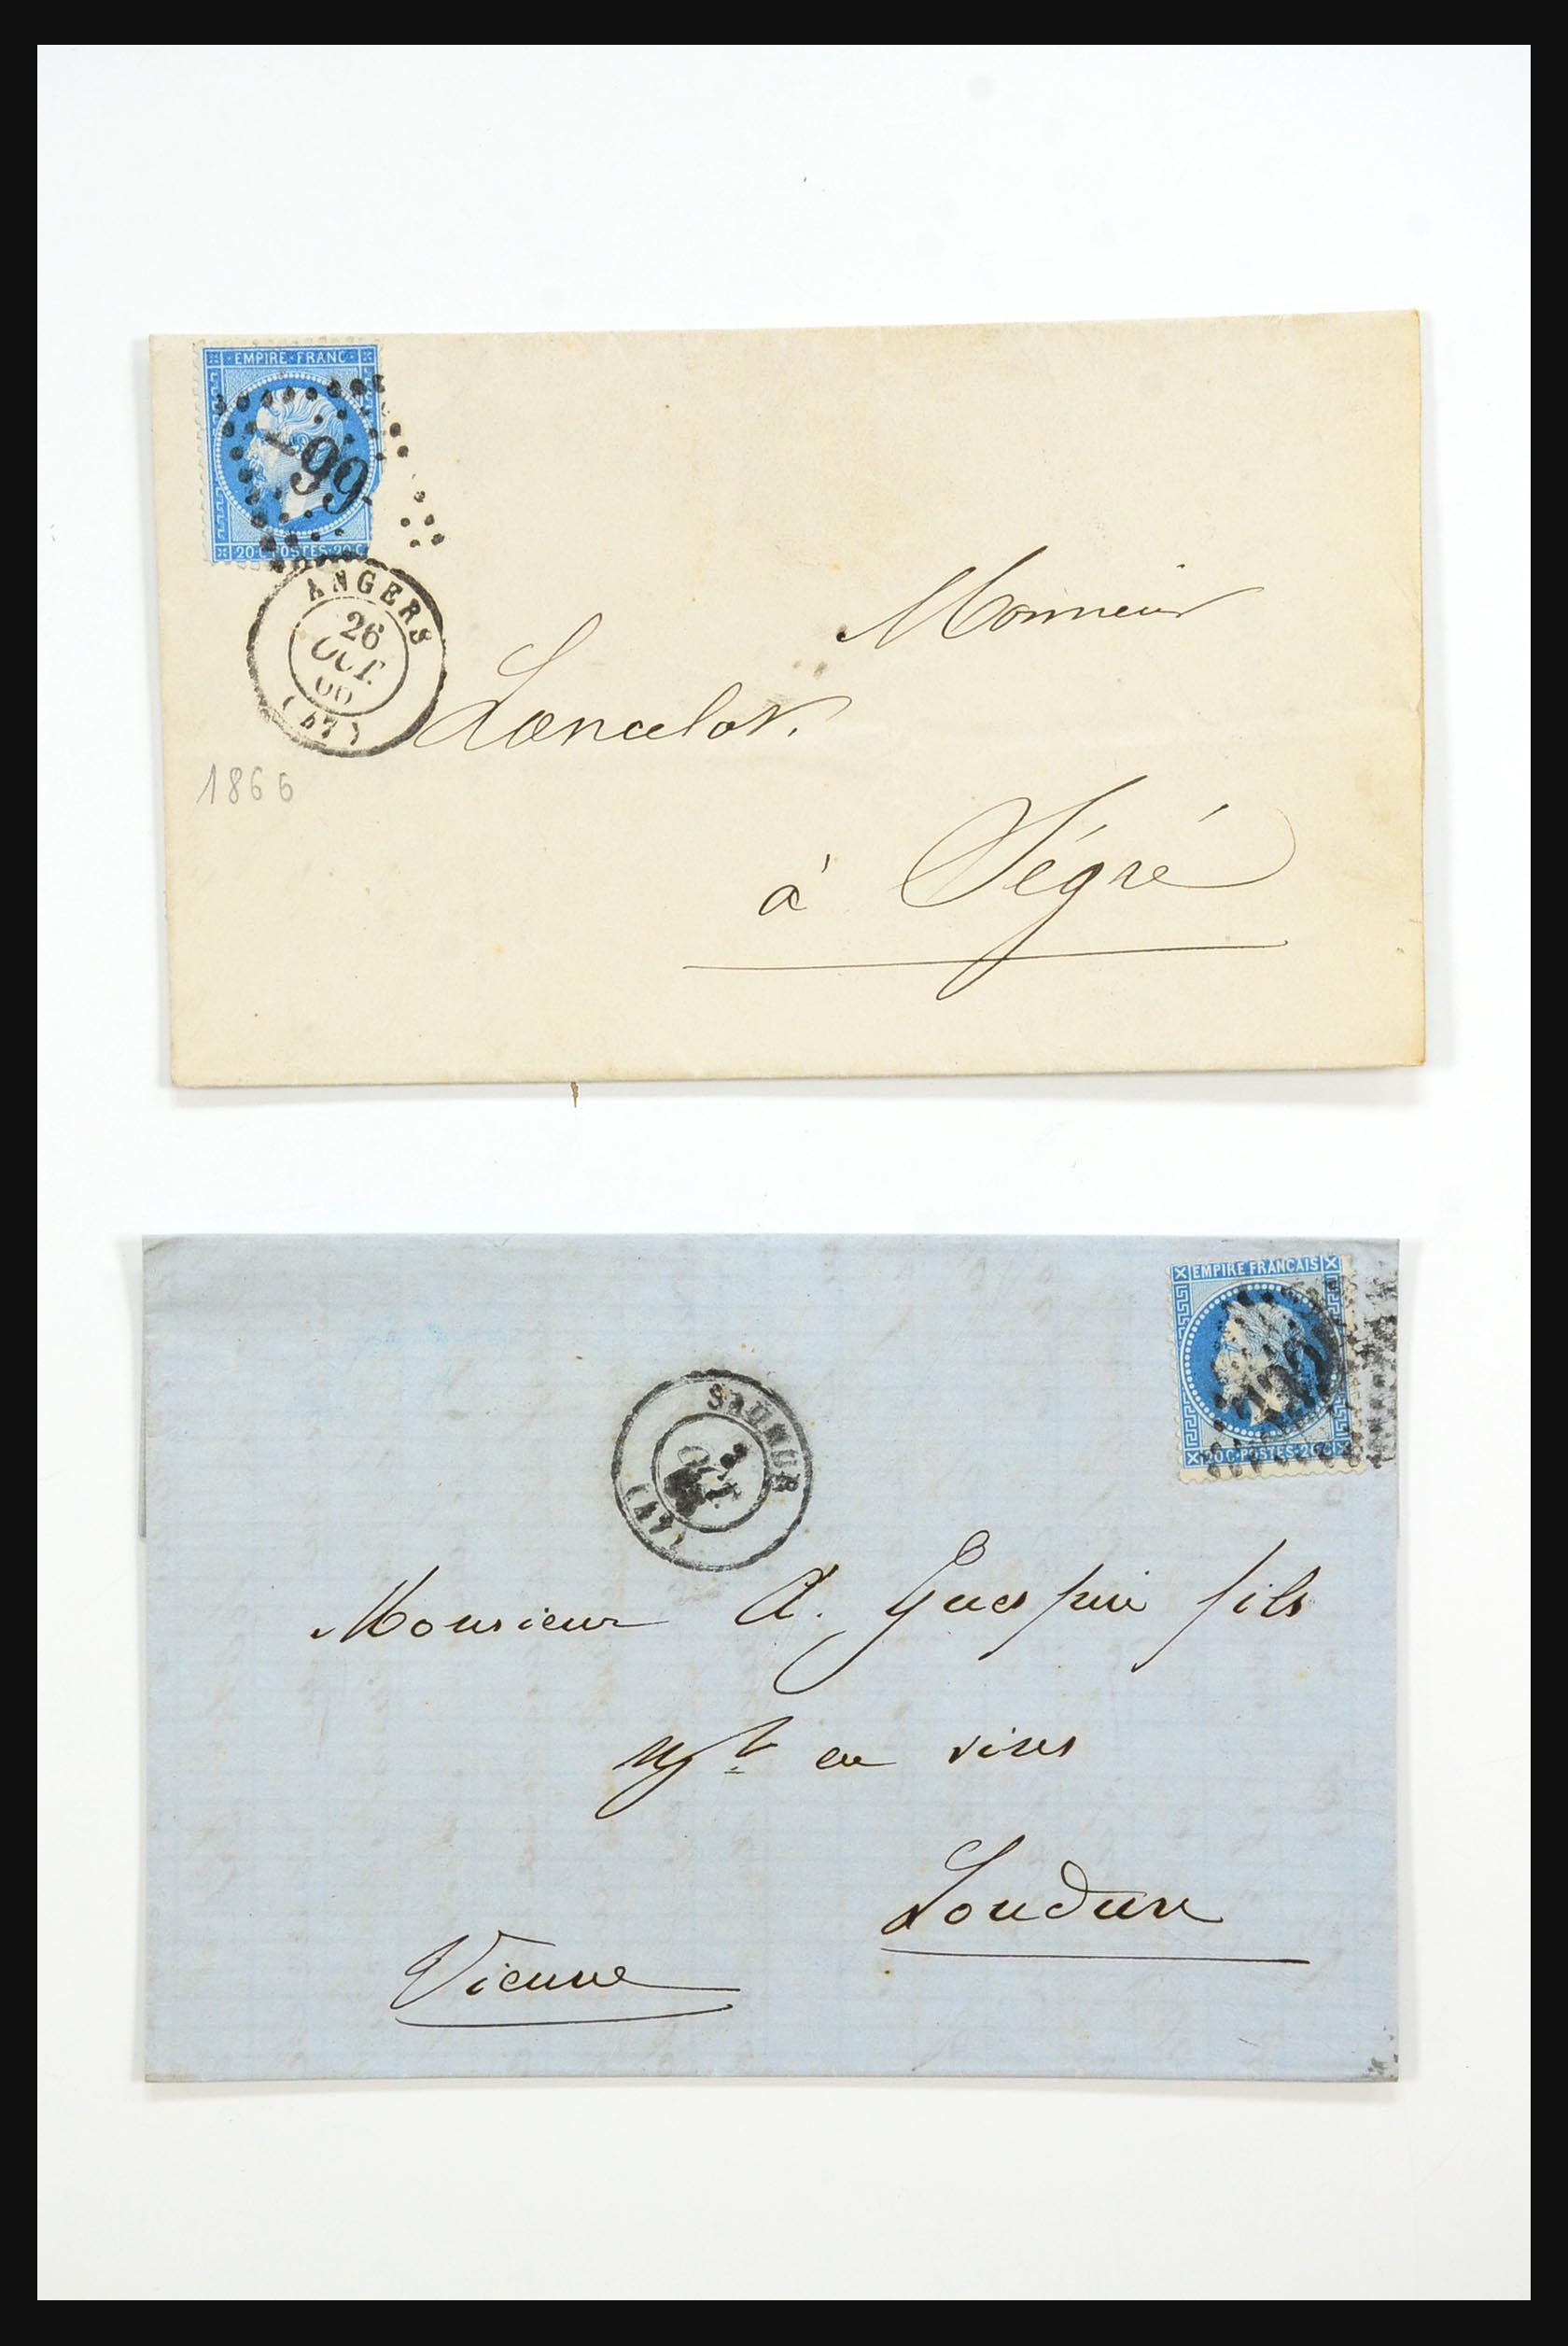 EMPIRE·FRANC·
99
20·C·POSTES·20·C
ANGERS
26
OCT.
66
(47)
1866
Monsieur
Lancelot.
à Ségré
EMPIRE FRANCAIS
20C·POSTES·20C
SAUMUR
(47)
Monsieur A. Guespin fils
Mgt en vins
Loudun
Vienne